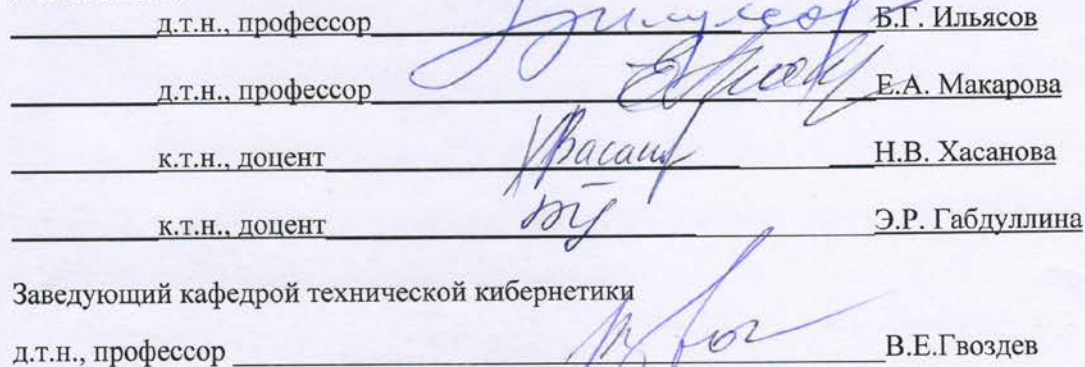 д.т.н., профессор Б.Г. Ильясов
д.т.н., профессор Е.А. Макарова
к.т.н., доцент Н.В. Хасанова
к.т.н., доцент Э.Р. Габдуллина
Заведующий кафедрой технической кибернетики
д.т.н., профессор В.Е.Гвоздев